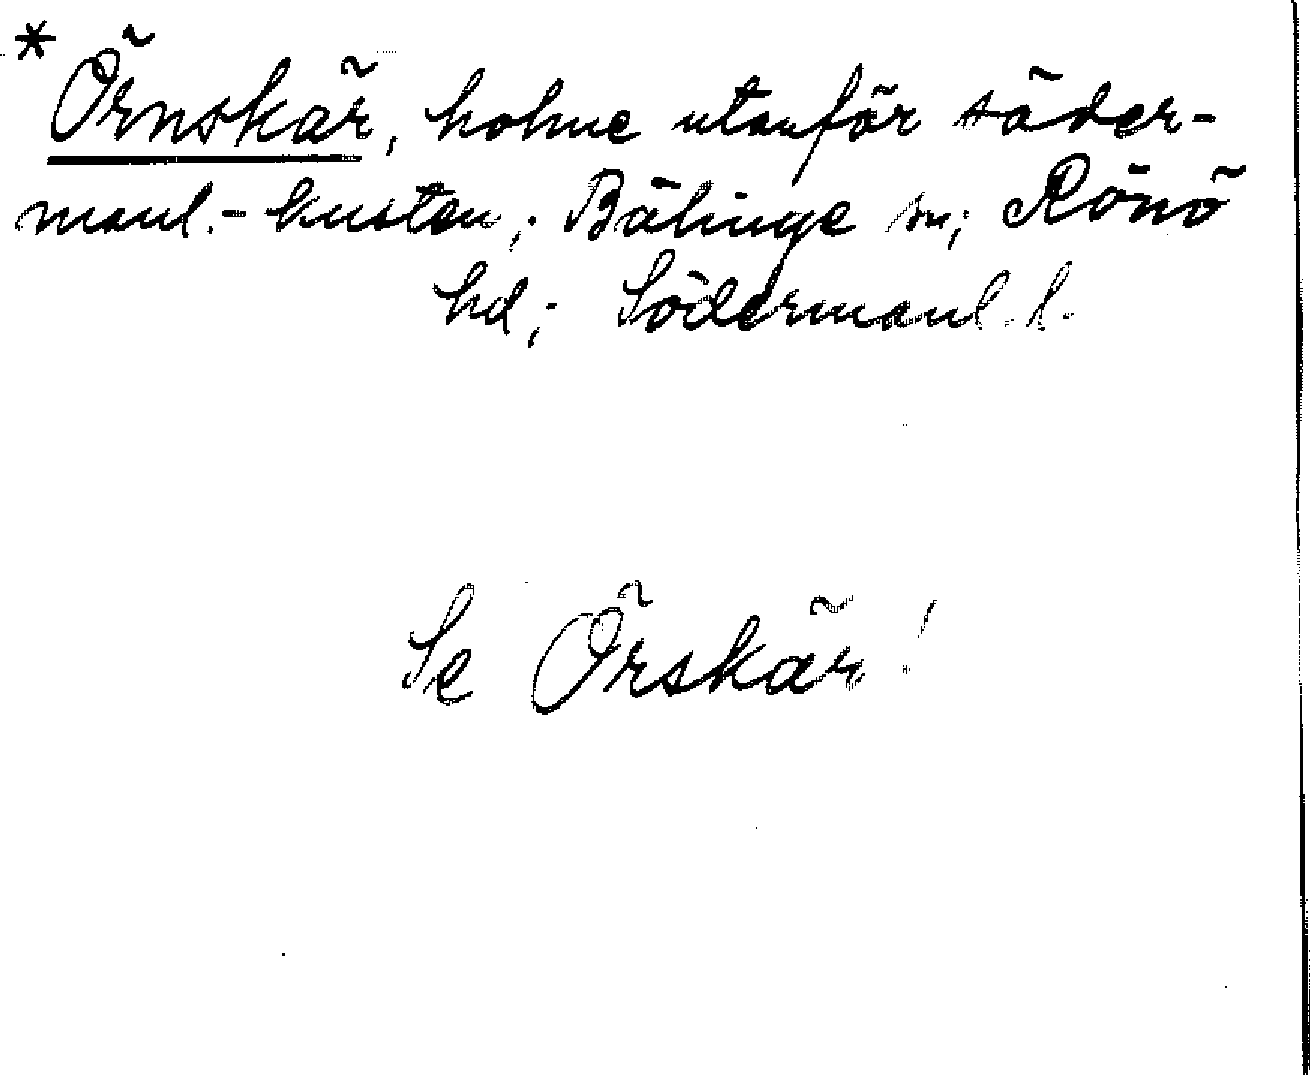 * Örnskär, holme utanför söder-
manl.-kusten; Bälinge sn; Rönö
hd; Södermanl. l.
Se Örskär!